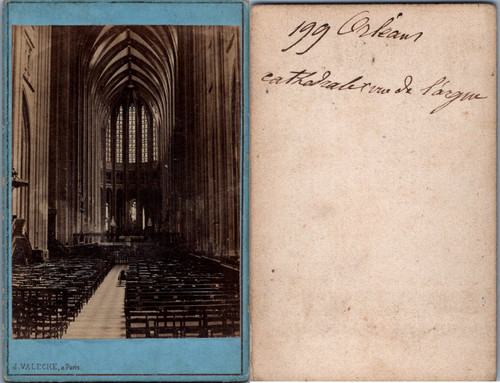 J. VALECKE, à Paris.
199 Orléans
cathédrale vue de l'orgue